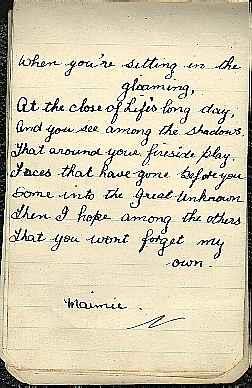 When you're sitting in the
gloaming,
At the close of Life's long day,
And you see among the shadows,
That around your fireside play.
Faces that have gone before you
Some into the Great Unknown
Then I hope among the others
That you wont forget my
own.
Maimie.